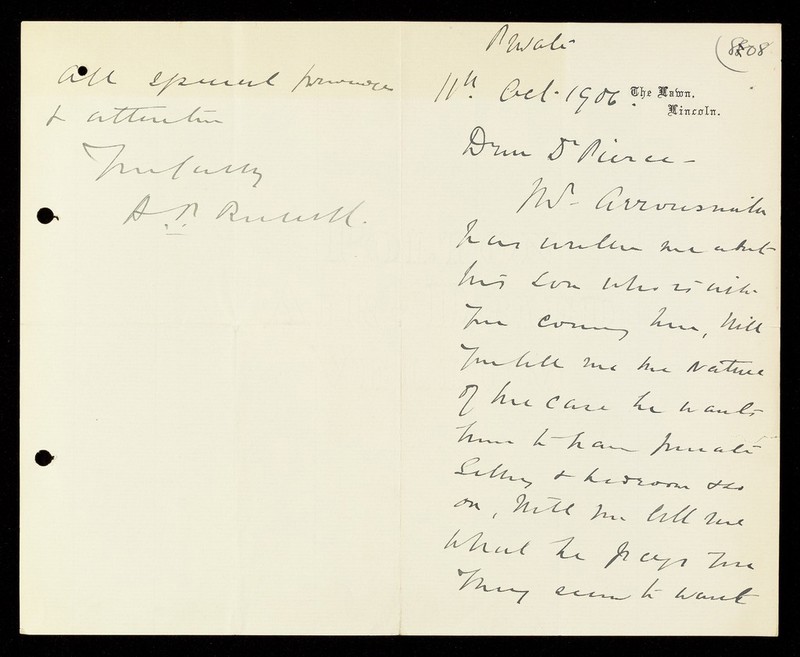 Private
8808
11th. Oct. 1906.
The Lawn.
Lincoln.
Dear Dr Pierce -
Mr. Arrowsmith
has written me about
his son who is with
you coming here, Will
you tell me the nature
of the case he wants
him to have private
Sitting & bedroom & so
on, Will you tell me
what he pays you
They seem to want
all special
& attention
Yrs faithfully
A. P. Russell.